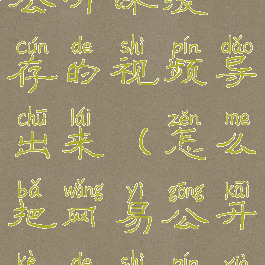 cún de shì pín dǎo
存的视频导
chū lái zěn me
出来（怎么
bǎ wǎng yì gōng kāi
把网易公开
kè de shì pín xià